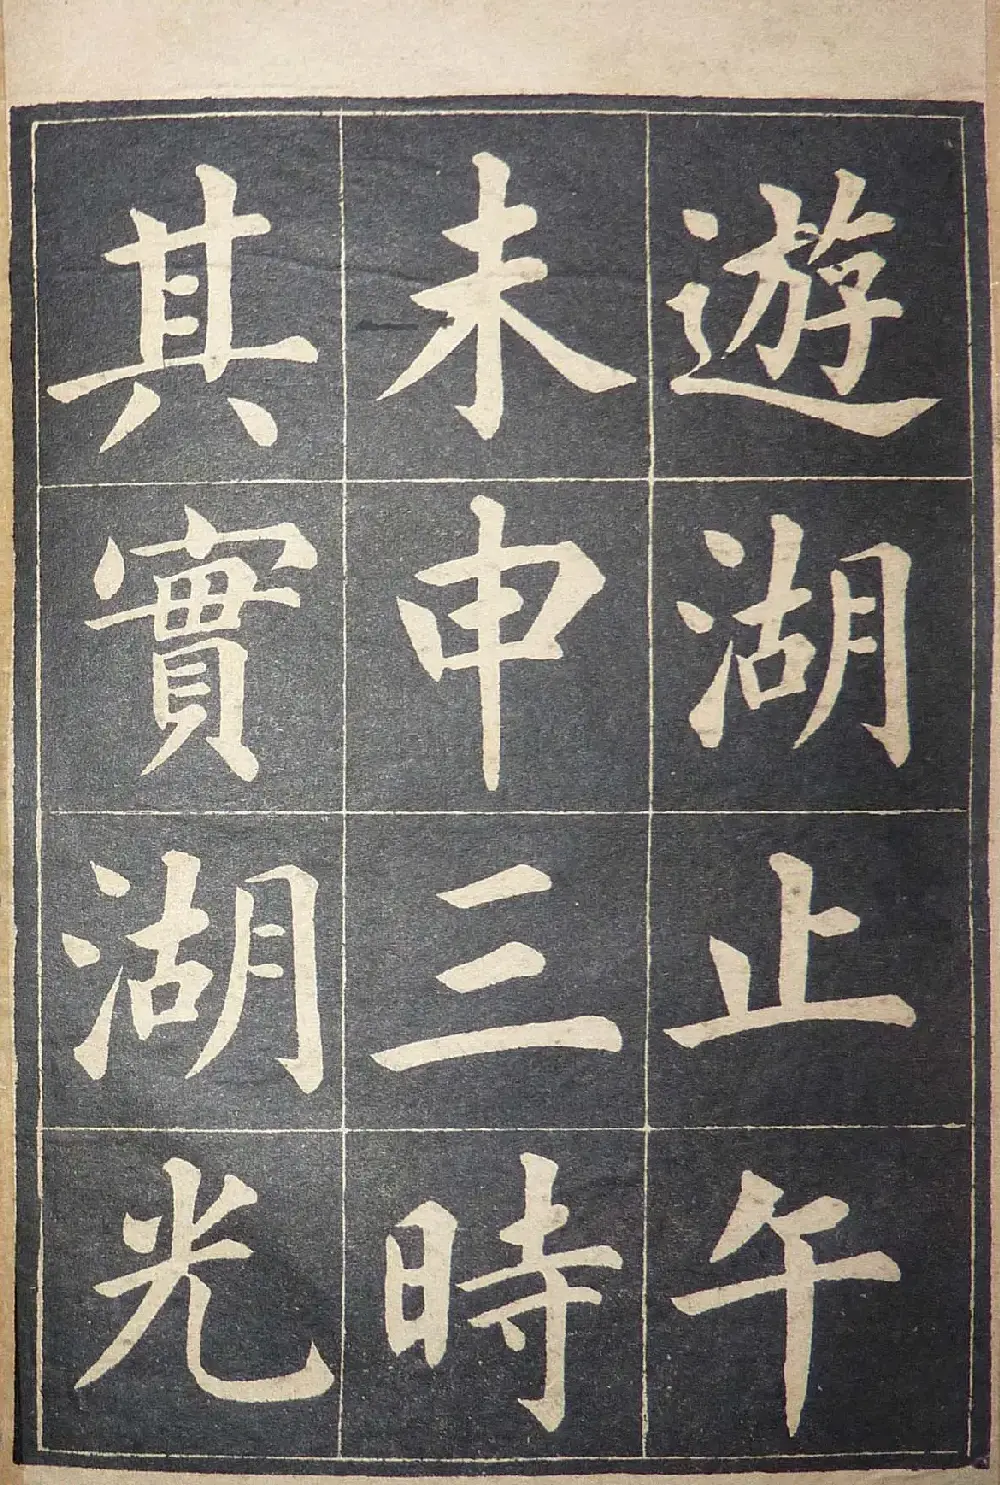 遊湖止午
未申三時
其實湖光